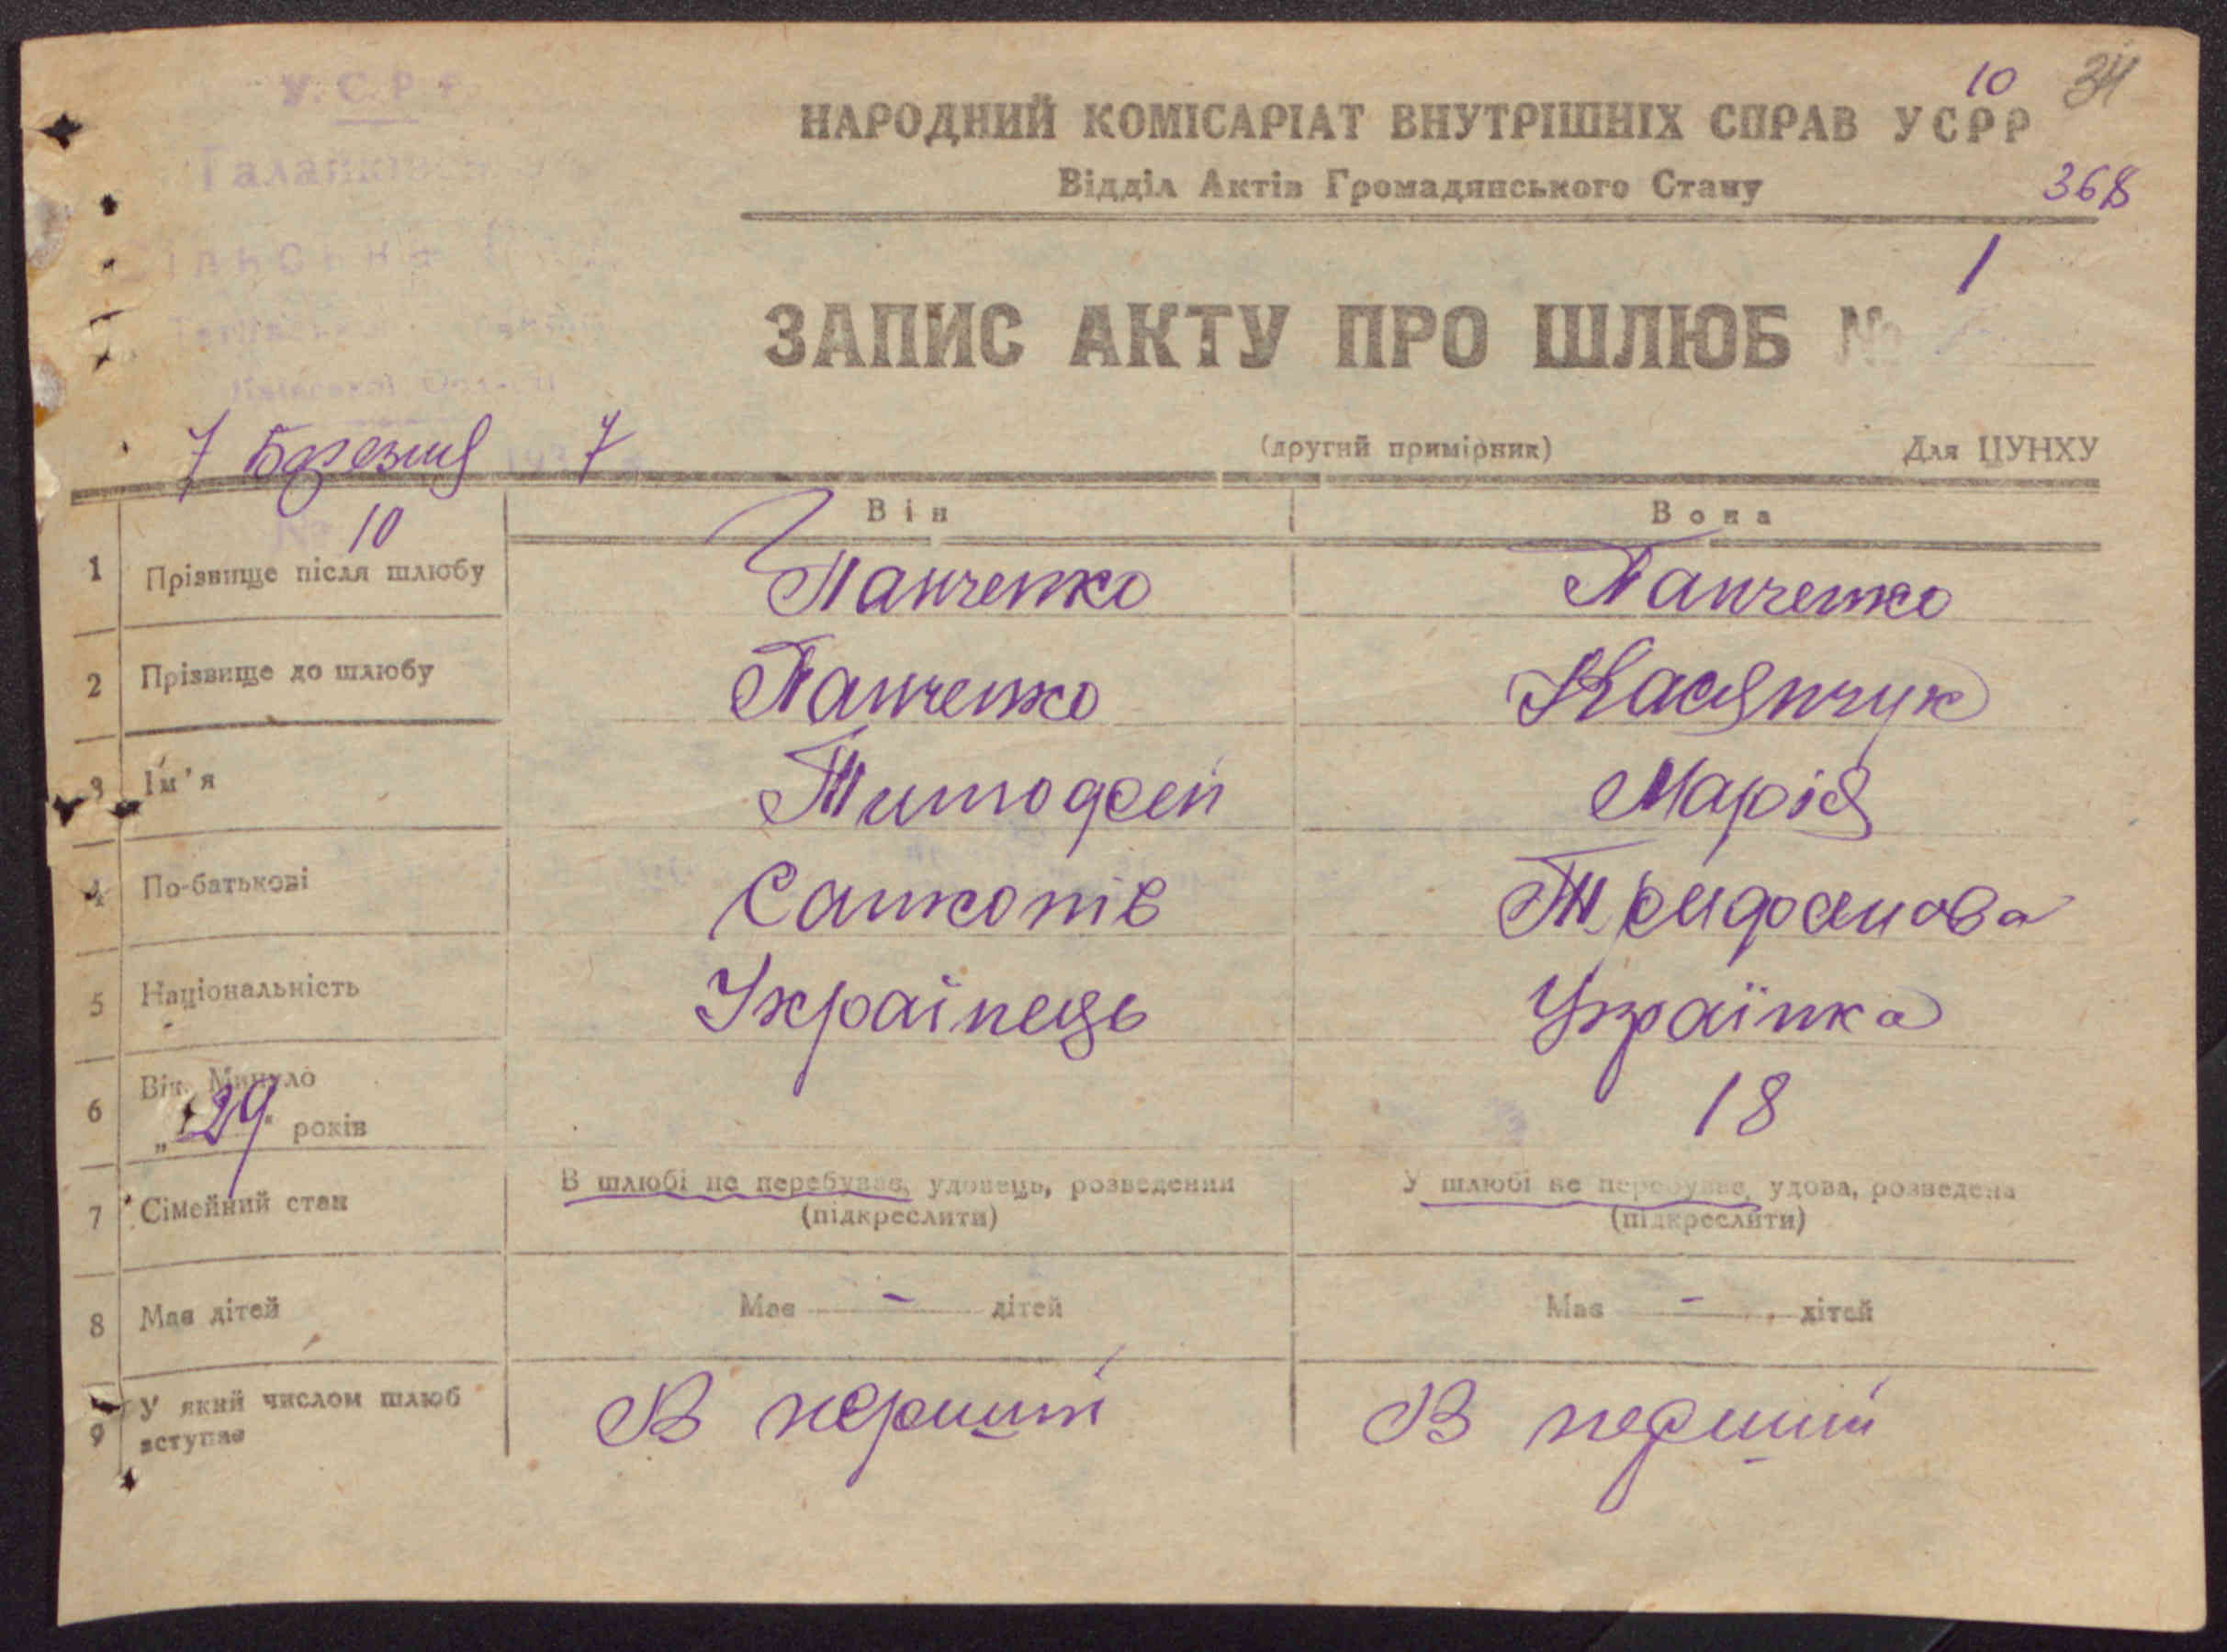 У.С.Р.Р.
10 34
НАРОДНИЙ КОМІСАРІАТ ВНУТРІШНІХ СПРАВ УСРР
Відділ Актів Громадянського Стану
368
Сільська
1
ЗАПИС АКТУ ПРО ШЛЮБ №
Київської Області
7 Березня 1937
(другий примірник) Для ЦУНХУ
№ 10
Він Вона
1 Прізвище після шлюбу Панченко Панченко
2 Прізвище до шлюбу Панченко Касянчук
3 Ім'я Тимофей Марія
4 По-батькові Сапконів
5 Національність Українець Українка
6 Вік. Минуло 18
„29" років
7 Сімейний стан В шлюбі не перебував, удовець, розведений У шлюбі не перебував, удова, розведена
(підкреслити) (підкреслити)
8 Має дітей Має - дітей Має - дітей
9 У який числом шлюб вступає В перший В перший